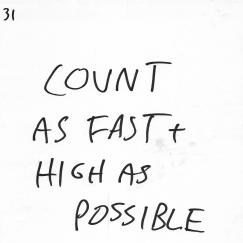 31
COUNT
AS FAST +
HIGH AS
POSSIBLE